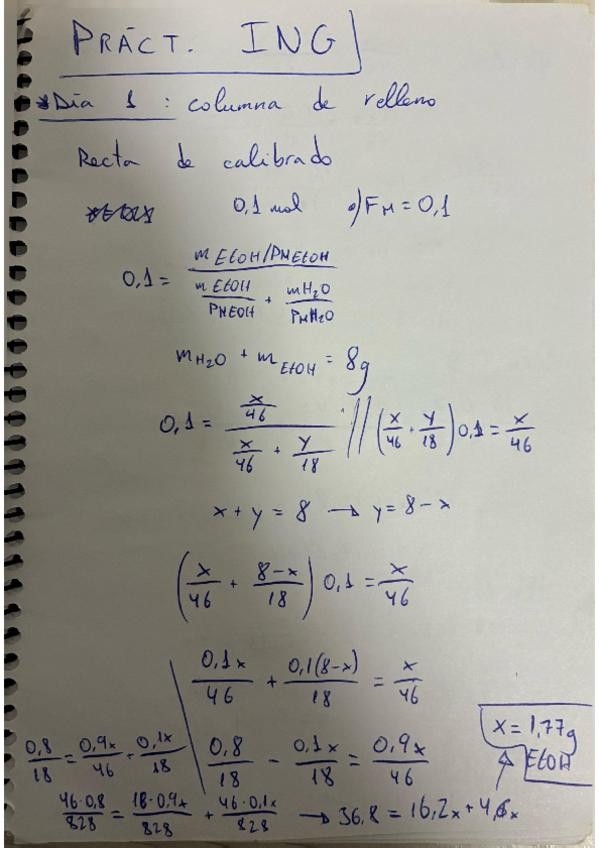 PRÁCT. ING
*Día 1 : columna de relleno
Recta de calibrado
0,1 mol •) FM = 0,1
0,1 = (m EtOH/PMEtOH) / (m EtOH/PMEtOH + mH2O/PMH2O)
mH2O + mEtOH = 8g
0,1 = (x/46) / (x/46 + y/18) // (x/46 + y/18) 0,1 = x/46
x + y = 8 → y = 8 - x
(x/46 + 8-x/18) 0,1 = x/46
0,1x/46 + 0,1(8-x)/18 = x/46
0,8/18 - 0,1x/18 = 0,9x/46
0,8/18 = 0,9x/46 + 0,1x/18
46·0,8/828 = 18·0,9x/828 + 46·0,1x/828 → 36,8 = 16,2x + 4,6x
x = 1,77g
EtOH